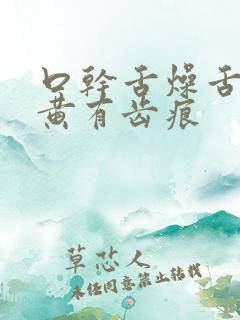 口幹舌燥舌
黄有齿痕
草芯人
未经同意禁止转载